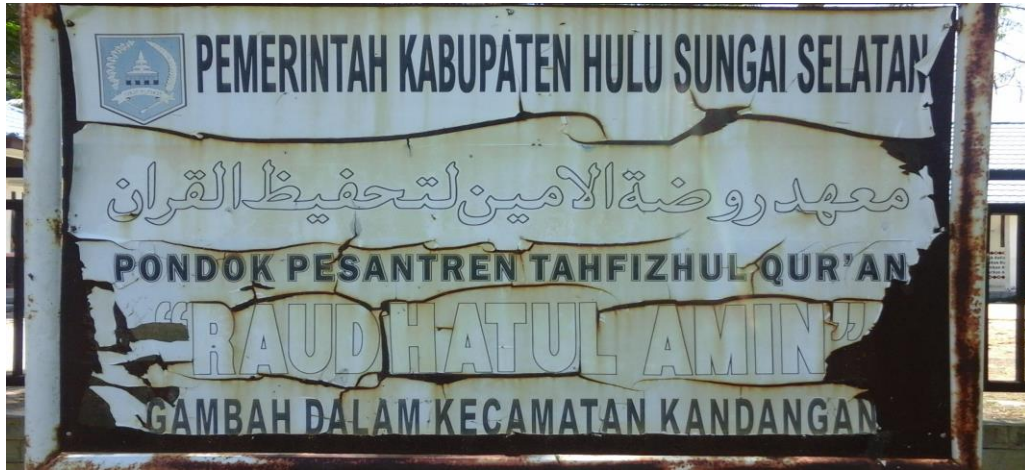 PEMERINTAH KABUPATEN HULU SUNGAI SELATAN
معهد روضة الامين لتحفيظ القران
PONDOK PESANTREN TAHFIZHUL QUR'AN
"RAUDHATUL AMIN"
GAMBAH DALAM KECAMATAN KANDANGAN